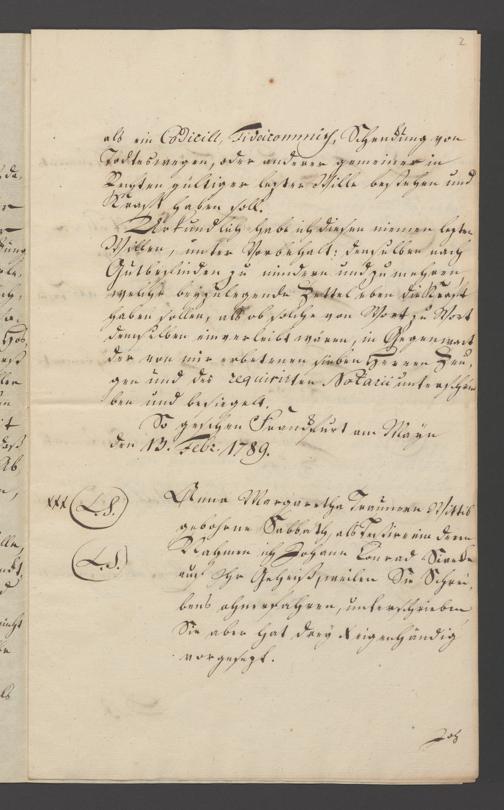 2
als ein Codicill, Fideicommiß, Schenkung von
Todteswegen, oder anderer gemeiner in
Rechten gültiger letzter Wille bestehen und
Kraft haben soll.
Urkundlich habe ich diesen meinen letzten
Willen, unter Vorbehalt: denselben nach
Gutbefinden zu mindern und zu mehren,
welche beyzulegende Zettel eben die Kraft
haben sollen, als ob solche von Wort zu Wort
denselben einverleibt wären, in Gegenwart
der von mir erbetenen sieben Herren Zeu-
gen und des requirirten Notarii unterschrie-
ben und besiegelt.
So geschehen Frankfurt am Mayn
den 13. Febr. 1789.
xxx (L.S.) Anna Margaretha Wittib
gebohrne Sabbath, als Testirerin deren
Nahmen ich Johann Conrad
auf Ihr Geheiß, weilen Sie Schrei-
bens ohnerfahren, unterschrieben
(L.S.)
Sie aber hat drey X eigenhändig
vorgesetzt.
Joh